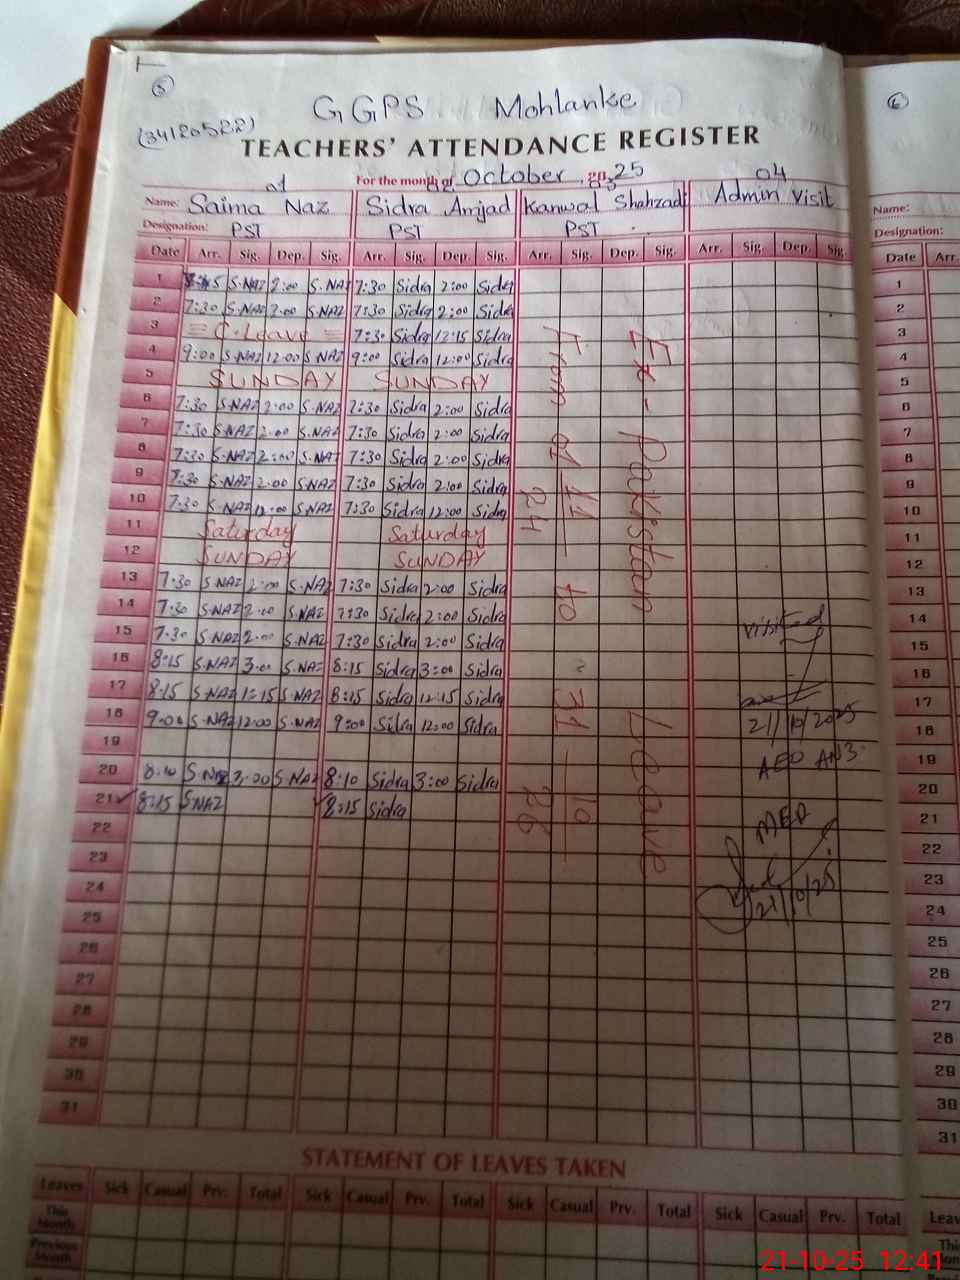 5
6
GGPS Mohlanke
(34120522)
TEACHERS' ATTENDANCE REGISTER
For the month of October, 2025
04
Name: Saima Naz Sidra Amjad Kanwal Shahzadi Admin Visit
Name:
Designation: PST PST PST
Designation:
Date Arr. Sig. Dep. Sig. Arr. Sig. Dep. Sig. Arr. Sig. Dep. Sig. Arr. Sig. Dep. Sig.
Date Arr.
1 S.NAZ 2:00 S.NAZ 7:30 Sidra 2:00 Sidra
2 7:30 S.NAZ 2:00 S.NAZ 7:30 Sidra 2:00 Sidra
3 C.Leave 7:30 Sidra 12:15 Sidra
4 9:00 S.NAZ 12:00 S.NAZ 9:00 Sidra 12:00 Sidra
5 SUNDAY SUNDAY
6 7:30 S.NAZ 2:00 S.NAZ 7:30 Sidra 2:00 Sidra
7 7:30 S.NAZ 2:00 S.NAZ 7:30 Sidra 2:00 Sidra
8 7:30 S.NAZ 2:00 S.NAZ 7:30 Sidra 2:00 Sidra
9 7:30 S.NAZ 2:00 S.NAZ 7:30 Sidra 2:00 Sidra
10 7:30 S.NAZ 12:00 S.NAZ 7:30 Sidra 12:00 Sidra
11 Saturday Saturday
12 SUNDAY SUNDAY
13 7:30 S.NAZ 2:00 S.NAZ 7:30 Sidra 2:00 Sidra
14 7:30 S.NAZ 2:00 S.NAZ 7:30 Sidra 2:00 Sidra
15 7:30 S.NAZ 2:00 S.NAZ 7:30 Sidra 2:00 Sidra
16 8:15 S.NAZ 3:00 S.NAZ 8:15 Sidra 3:00 Sidra
17 8:15 S.NAZ 1:15 S.NAZ 8:15 Sidra 12:15 Sidra
18 9:00 S.NAZ 12:00 S.NAZ 9:00 Sidra 12:00 Sidra
19
20 8:10 S.NAZ 3:00 S.NAZ 8:10 Sidra 3:00 Sidra
21 8:15 S.NAZ 8:15 Sidra
22
23
24
25
26
27
28
29
30
31
Ex-Pakistan Leave
From 01-11-24 to 31-10-26
Visited
21/10/2025
AEO
MEA
21/10/25
1
2
3
4
5
6
7
8
9
10
11
12
13
14
15
16
17
18
19
20
21
22
23
24
25
26
27
28
29
30
31
STATEMENT OF LEAVES TAKEN
Leaves Sick Casual Prv. Total Sick Casual Prv. Total Sick Casual Prv. Total Sick Casual Prv. Total
This Month
Previous Month
21-10-25 12:41